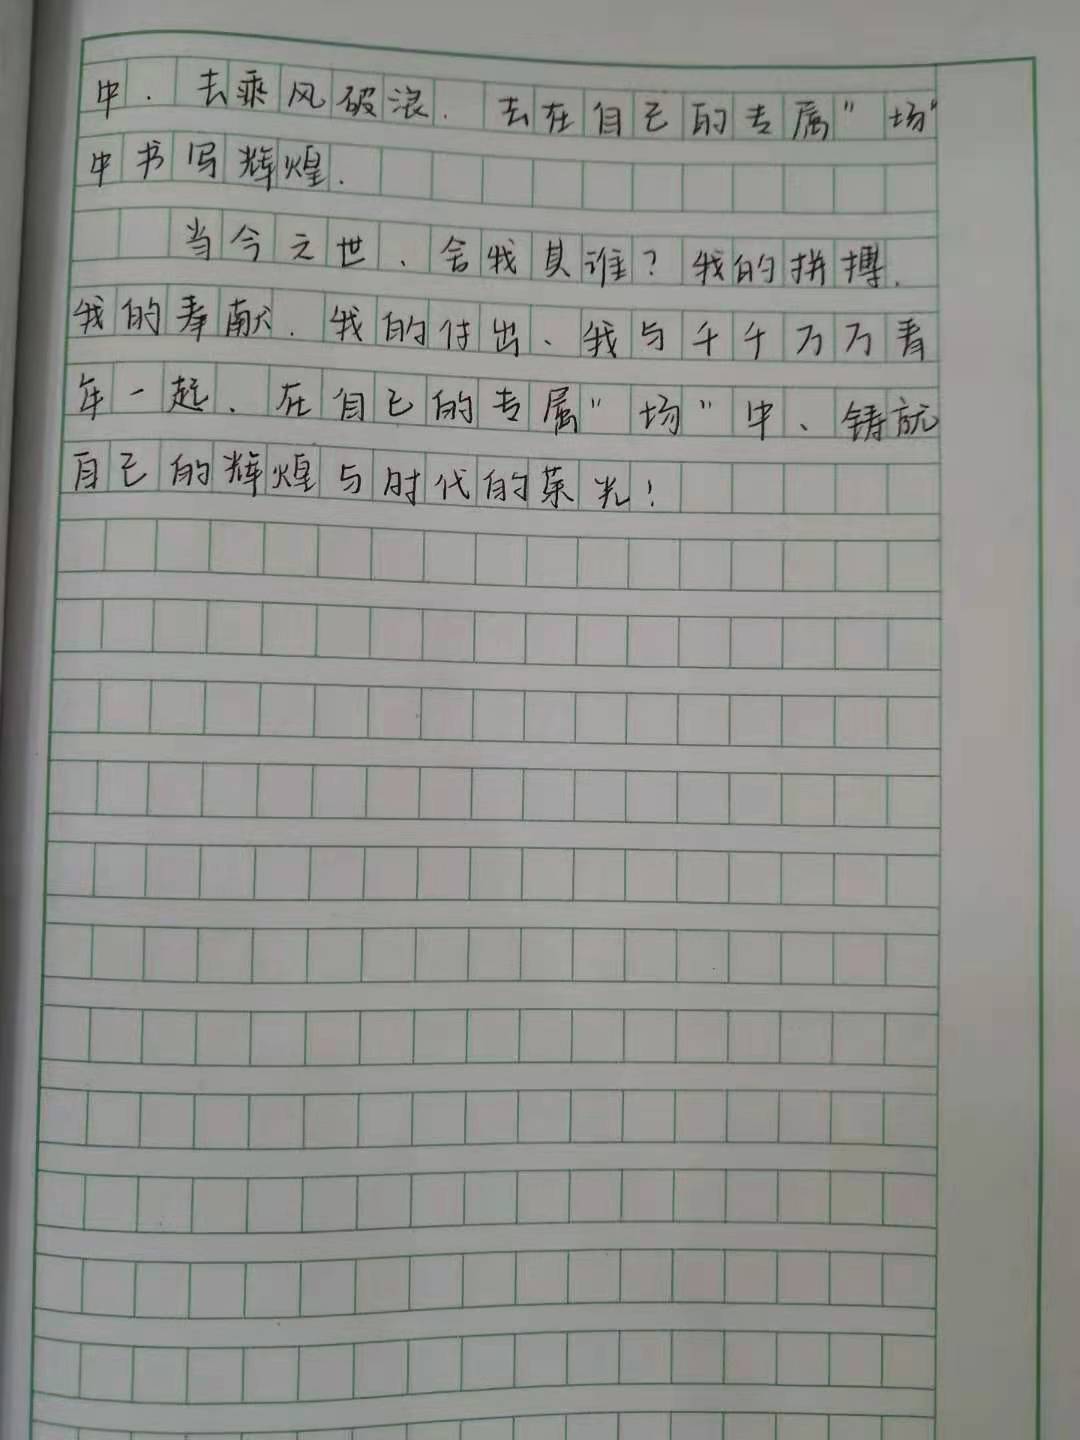 中，去乘风破浪，去在自己的专属"场"
中书写辉煌.
当今之世，舍我其谁？我的拼搏，
我的奉献，我的付出、我与千千万万青
年一起，在自己的专属"场"中、铸就
自己的辉煌与时代的荣光！